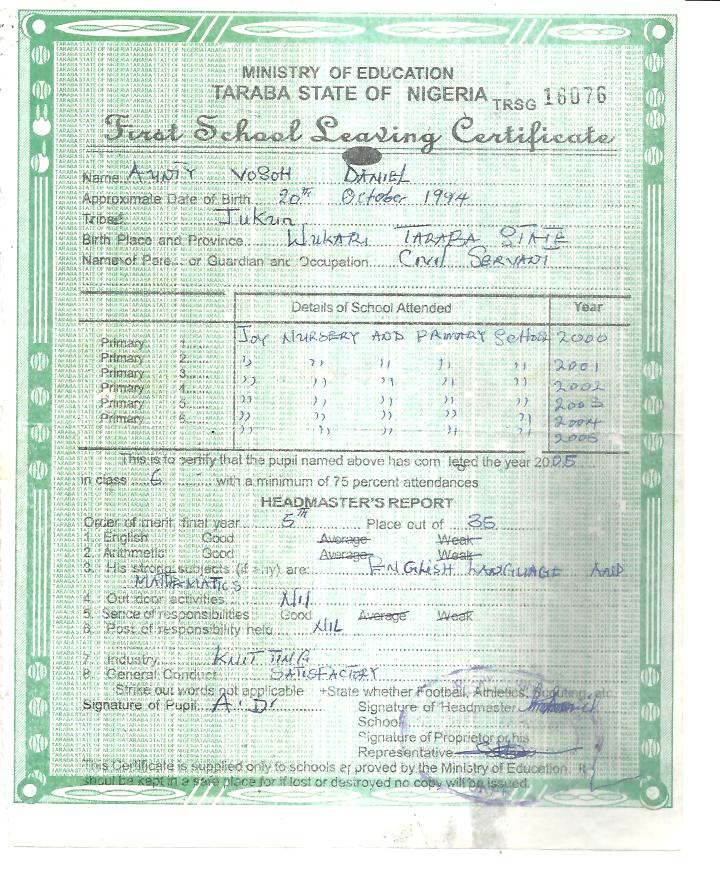 MINISTRY OF EDUCATION
TARABA STATE OF NIGERIA TRSG 16076
First School Leaving Certificate
Name AUNTY VOSOH DANIEL
Approximate Date of Birth 20TH October 1994
Tribe Jukun
Birth Place and Province WUKARI TARABA STATE
Name of Pare... or Guardian and Occupation CIVIL SERVANT
Details of School Attended Year
Primary 1 JOY NURSERY AND PRIMARY School 2000
Primary 2 ,, ,, ,, ,, ,, 2001
Primary 3 ,, ,, ,, ,, ,, 2002
Primary 4 ,, ,, ,, ,, ,, 2003
Primary 5 ,, ,, ,, ,, ,, 2004
Primary 6 ,, ,, ,, ,, ,, 2005
This is to certify that the pupil named above has com leted the year 2005
in class 6 with a minimum of 75 percent attendances
HEADMASTER'S REPORT
Order of merit, final year 5TH Place out of 35
1. English Good Average Weak
2. Arithmetic Good Average Weak
3. His strong subjects (if any) are: ENGLISH LANGUAGE AND
MATHEMATICS
4. Out door activities Nil
5. Sence of responsibilities Good Average Weak
6. Post of responsibility held NIL
7. Industry KNITTING
8. General Conduct SATISFACTORY
Strike out words not applicable +State whether Football, Athletics, Scouting, etc
Signature of Pupil A.D. Signature of Headmaster
School
Signature of Proprietor or his
Representative
This Certificate is supplied only to schools ap proved by the Ministry of Education It
should be kept in a safe place for if lost or destroyed no copy will be issued.